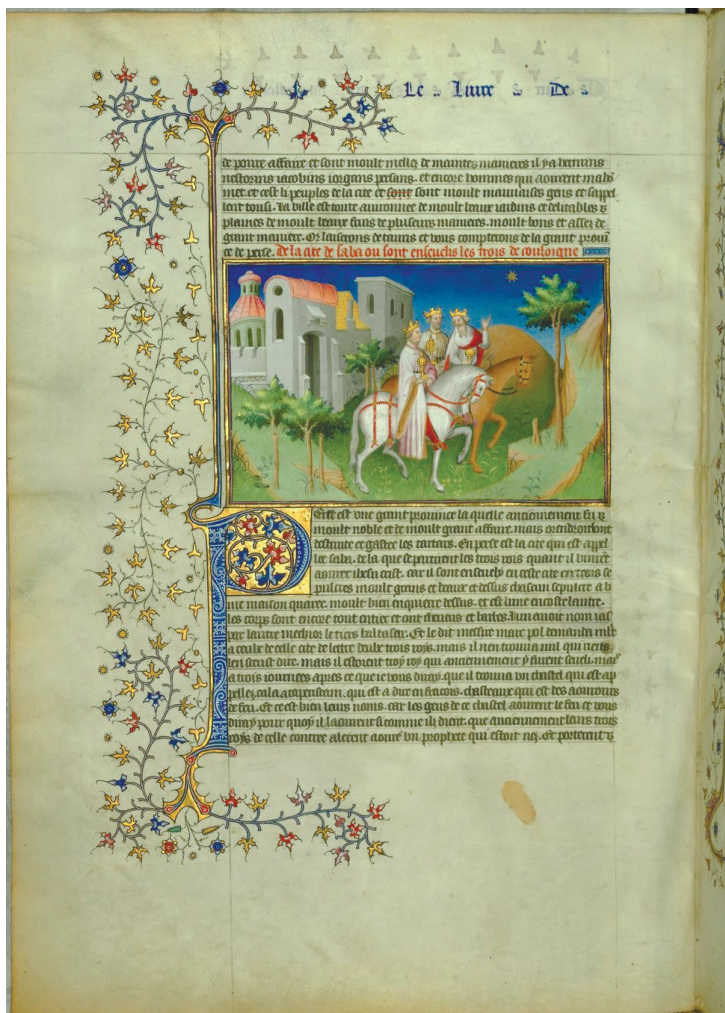 Le Liure De
de poure affaire et sont moult mellez de maintes manieres il y a hermins
nestorins iacobins iorgans persans. et encore hommes qui aourent mahō
met. et cest li peuples de la cite ce sont sont moult mauuaises gens et sappel
lent tousi. La ville est toute auironnee de moult beaux iardins et delitables ⁊
plaines de moult beaux fruis de plusieurs manieres. moult bons et assez de
grant maniere. Or lairons de tauris et vous compterons de la grant prouī
ce de perse. De la cite de saba ou sont enseuelis les trois de couloigne
Perse est vne grant prouince la quelle anciennement fu ⁊
moult noble et de moult grant affaire. mais orendroit lont
destruite et gastee les tartars. En perse est la cite qui est appel
lee saba. de la que se partirent les trois rois quant il vindrēt
aourer ihesu crist. car il sont enseuely en ceste cite en trois se
pulcres moult grans et beaux et dessus chascun sepulcre a v
ne maison quaree. moult bien enquieure dessus. et est lune encoste lautre.
les corps sont encore tout entier et ont cheueus et barbes. lun auoit nom ias
par lautre melchior le tiers baltasar. Et le dit messire marc pol demanda mlt
a ceulx de celle cite de lestre daulx trois roys. mais il nen trouua nul qui riens
len sceust dire. mais il estoient troy roy qui anciennement y furent seueli. mais
a trois iournees apres ce que ie vous diray. que il trouua vn chastel qui est ap
pellez cala atapersitam. qui est a dire en francois. chasteaux qui est des aourours
de feu. Et ce est bien leurs noms. car les gens de ce chastel aourent le feu et vous
diray pour quoy il laourent si comme ilz dient. que anciennement leurs trois
roys de celle contree alerent aourer vn prophete qui estoit nez. et porterent ⁊